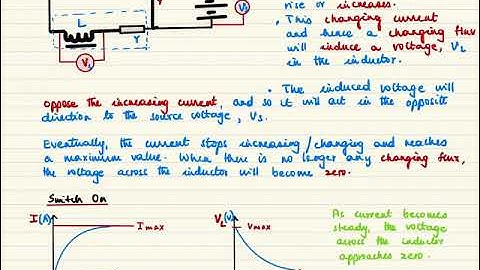 rise or increases.
• This changing current
and hence a changing flux
will induce a voltage, VL
in the inductor.
L
r
VL
Vs
• The induced voltage will
oppose the increasing current, and so it will act in the opposite
direction to the source voltage, Vs.
Eventually, the current stops increasing/changing and reaches
a maximum value. When there is no longer any changing flux,
the voltage across the inductor will become zero.
Switch On
I(A)
Imax
VL(V)
Vmax
As current becomes
steady, the voltage
across the inductor
approaches zero.